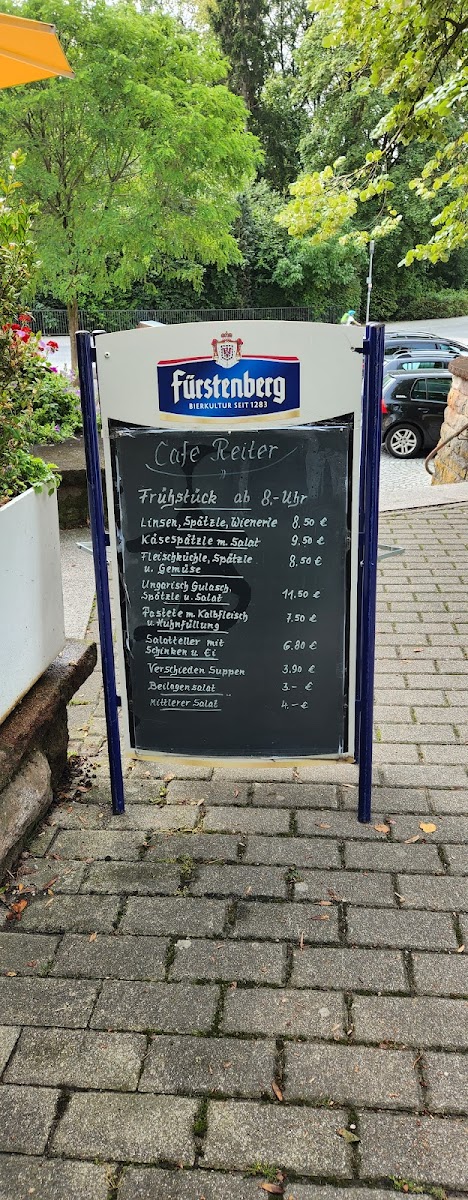 Fürstenberg
BIERKULTUR SEIT 1283
Cafe Reiter
Frühstück ab 8,-Uhr
Linsen, Spätzle, Wienerle 8.50 €
Käsespätzle m. Salat 9.50 €
Fleischküchle, Spätzle 8.50 €
u. Gemüse
Ungarisch Gulasch,
Spätzle u. Salat 11.50 €
Pastete m. Kalbfleisch 7.50 €
u. Huhnfüllung
Salatteller mit 6.80 €
Schinken u. Ei
Verschieden Suppen 3.90 €
Beilagensalat 3.- €
Mittlerer Salat 4.- €